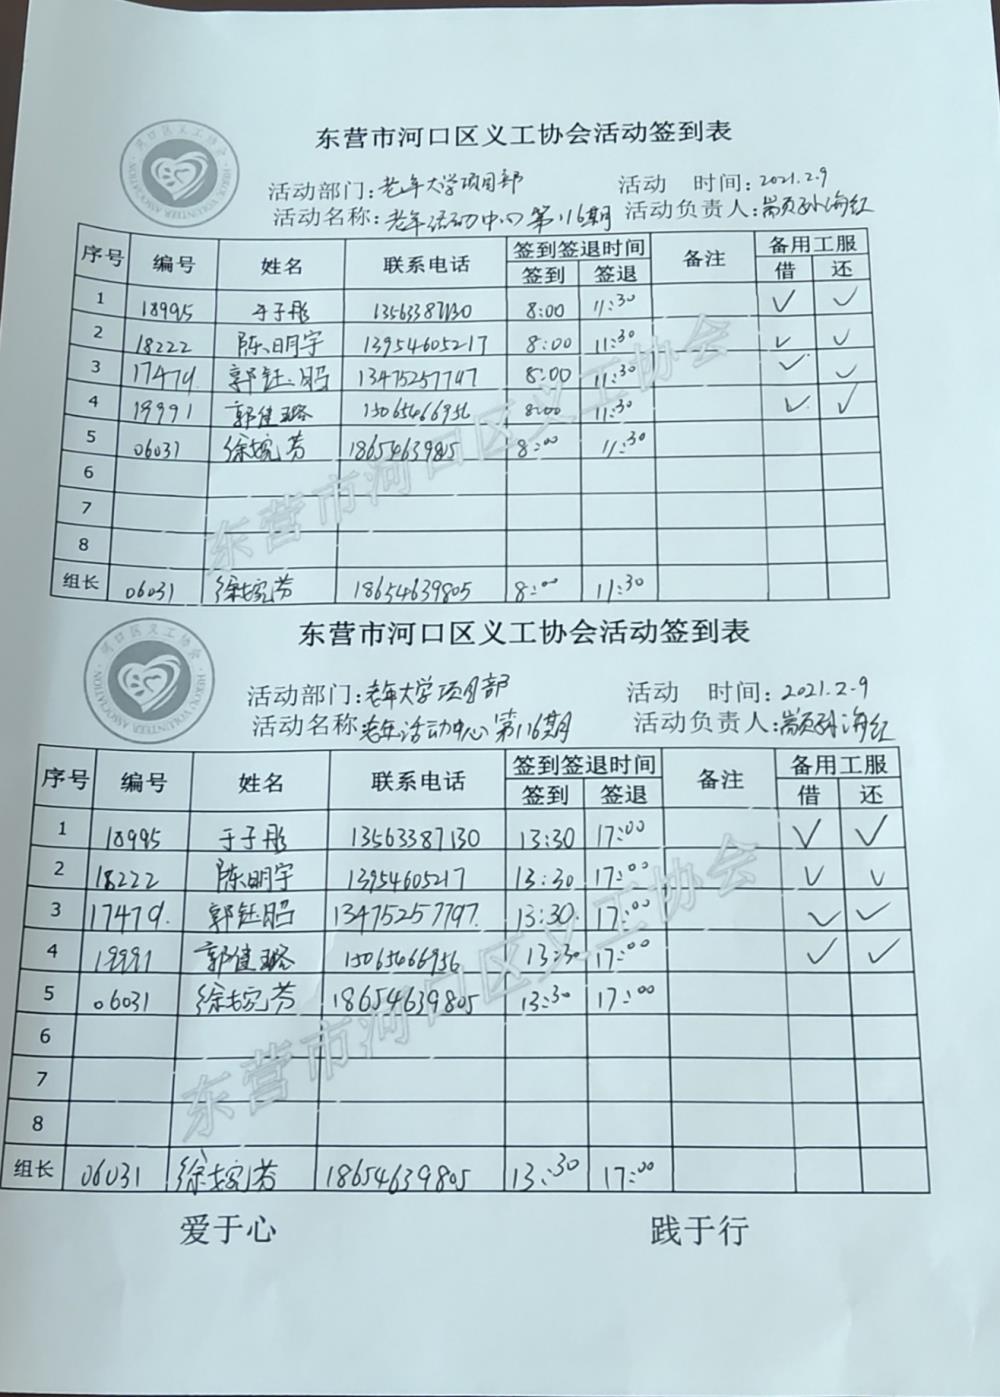 东营市河口区义工协会活动签到表
河口区义工协会
HEKOU VOLUNTEER ASSOCIATION
活动部门:老年大学项目部 活动 时间:2021.2.9
活动名称:老年活动中心第116期 活动负责人:颛孙海红
序号 编号 姓名 联系电话 签到签退时间 备注 备用工服
签到 签退 借 还
1 18995 于子彤 13563387130 8:00 11:30 ✓ ✓
2 18222 陈明宇 13954605217 8:00 11:30 ✓ ✓
3 17479. 郭钰昭 13475257797 8:00 11:30 ✓ ✓
4 19991 郭健璐 15065466956 8:00 11:30 ✓ ✓
5 06031 徐婉芳 18654639805 8:00 11:30
6
7
8
组长 06031 徐婉芳 18654639805 8:00 11:30
东营市河口区义工协会
东营市河口区义工协会活动签到表
河口区义工协会
HEKOU VOLUNTEER ASSOCIATION
活动部门:老年大学项目部 活动 时间:2021.2.9
活动名称老年活动中心第116期 活动负责人:颛孙海红
序号 编号 姓名 联系电话 签到签退时间 备注 备用工服
签到 签退 借 还
1 18995 于子彤 13563387130 13:30 17:00 ✓ ✓
2 18222 陈明宇 13954605217 13:30 17:00 ✓ ✓
3 17479. 郭钰昭 13475257797. 13:30. 17:00 ✓ ✓
4 19991 郭健璐 15065466956 13:30 17:00 ✓ ✓
5 06031 徐婉芳 18654639805 13:30 17:00
6
7
8
组长 06031 徐婉芳 18654639805 13:30 17:00
东营市河口区义工协会
爱于心 践于行